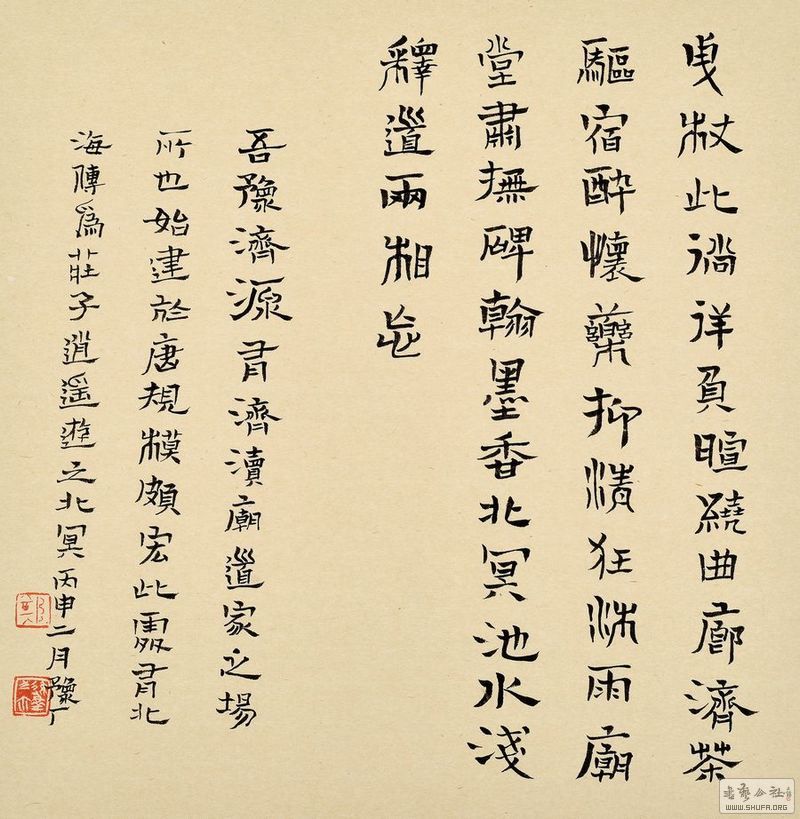 曳杖此徜徉負暄繞曲廊濟茶
驅宿醉懷藥抑清狂沐雨廟
堂肅撫碑翰墨香北冥池水淺
釋道兩相忘
吾豫濟源有濟瀆廟道家之場
所也始建於唐規模頗宏此處有北
海傳爲莊子逍遙遊之北冥丙申二月豫厂
书艺公社
WWW.SHUFA.ORG